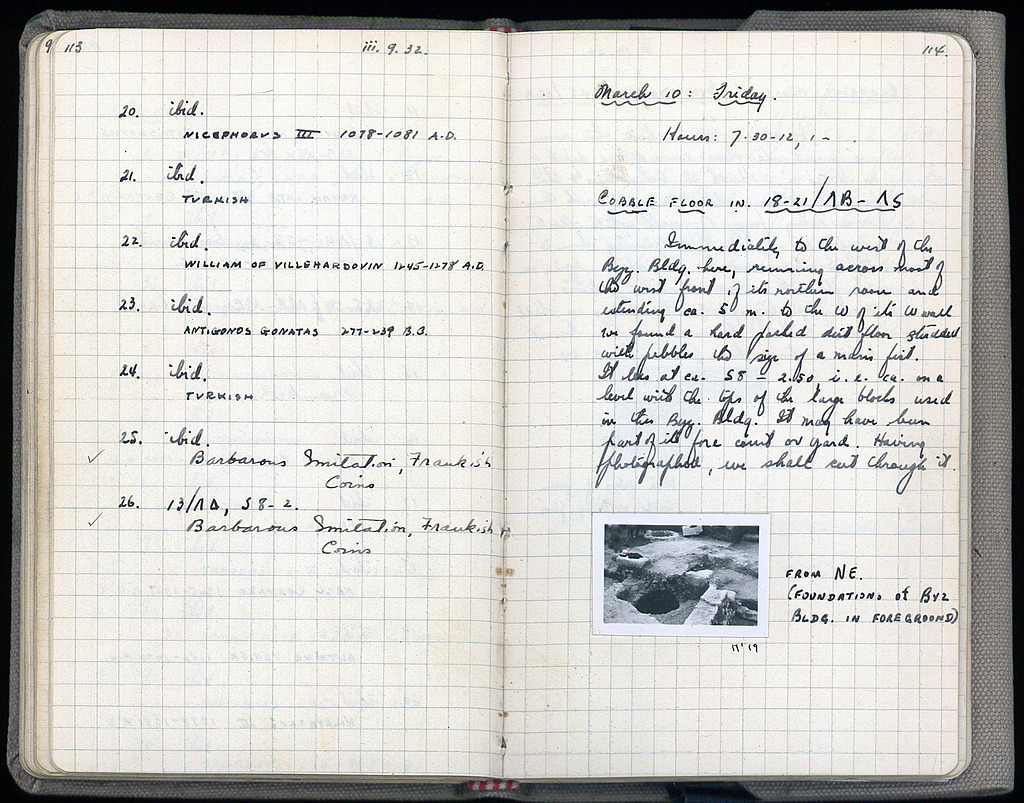 9 113
iii. 9. 32.
20. ibid.
NICEPHORUS III 1078-1081 A.D.
21. ibid.
TURKISH
22. ibid.
WILLIAM OF VILLEHARDOVIN 1245-1278 A.D.
23. ibid.
ANTIGONOS GONATAS 277-239 B.C.
24. ibid.
TURKISH
25. ibid.
✓ Barbarous Imitation, Frankish
Coins
26. 13/ΛΔ, 58-2.
✓ Barbarous Imitation, Frankish
Coins
114.
March 10: Friday.
Hours: 7.30-12, 1-
COBBLE FLOOR IN 18-21/ΛB-ΛS
Immediately to the west of the
Byz. Bldg. here, running across most of
the west front of its northern room and
extending ca. 5 m. to the W of its W wall
we found a hard packed dirt floor studded
with pebbles the size of a man's fist.
It lies at ca. 58 - 2.50, i.e. ca. on a
level with the tops of the large blocks used
in the Byz. Bldg. It may have been
part of its fore court or yard. Having
photographed, we shall cut through it.
FROM NE.
(FOUNDATIONS of BYZ
BLDG. IN FOREGROUND)